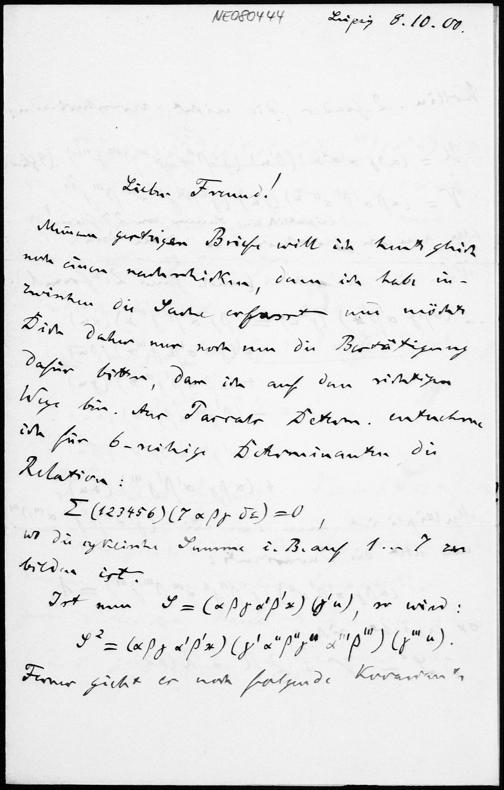 NE080444
Leipzig 8.10.00.
Lieber Freund!
Meinem gestrigen Briefe will ich heute gleich
noch einen nachschicken, denn ich habe in-
zwischen die Sache erfasst und möchte
Dich daher nur noch um die Bestätigung
dafür bitten, dass ich auf dem richtigen
Wege bin. Aus Pascals Determ. entnehme
ich für 6-reihige Determinanten die
Relation:
Σ (123456)(7 α β γ δ ε) = 0,
wo die cyklische Summe i. B. auf 1 . . 7 zu
bilden ist.
Ist nun S = (α β γ α' β' x)(γ' u), so wird:
S² = (α β γ α' β' x)(γ' α'' β'' γ'' α''' β''')(γ''' u).
Ferner giebt es noch folgende Kovariante